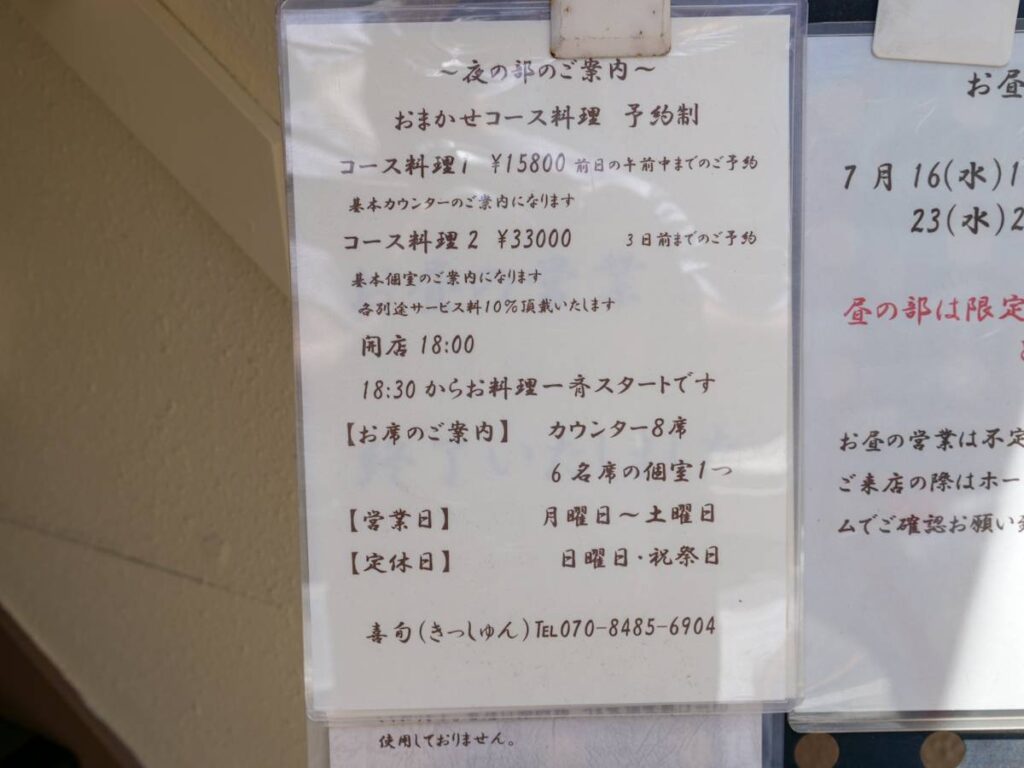 ～夜の部のご案内～
おまかせコース料理 予約制
コース料理1 ¥15800 前日の午前中までのご予約
基本カウンターのご案内になります
コース料理2 ¥33000 3日前までのご予約
基本個室のご案内になります
各別途サービス料10%頂戴いたします
開店 18:00
18:30 からお料理一斉スタートです
【お席のご案内】 カウンター8席
6名席の個室1つ
【営業日】 月曜日～土曜日
【定休日】 日曜日・祝祭日
喜旬(きっしゅん)TEL070-8485-6904
使用しておりません。
お昼
7月 16(水)1
23(水)2
昼の部は限定
お昼の営業は不定
ご来店の際はホー
ムでご確認お願い